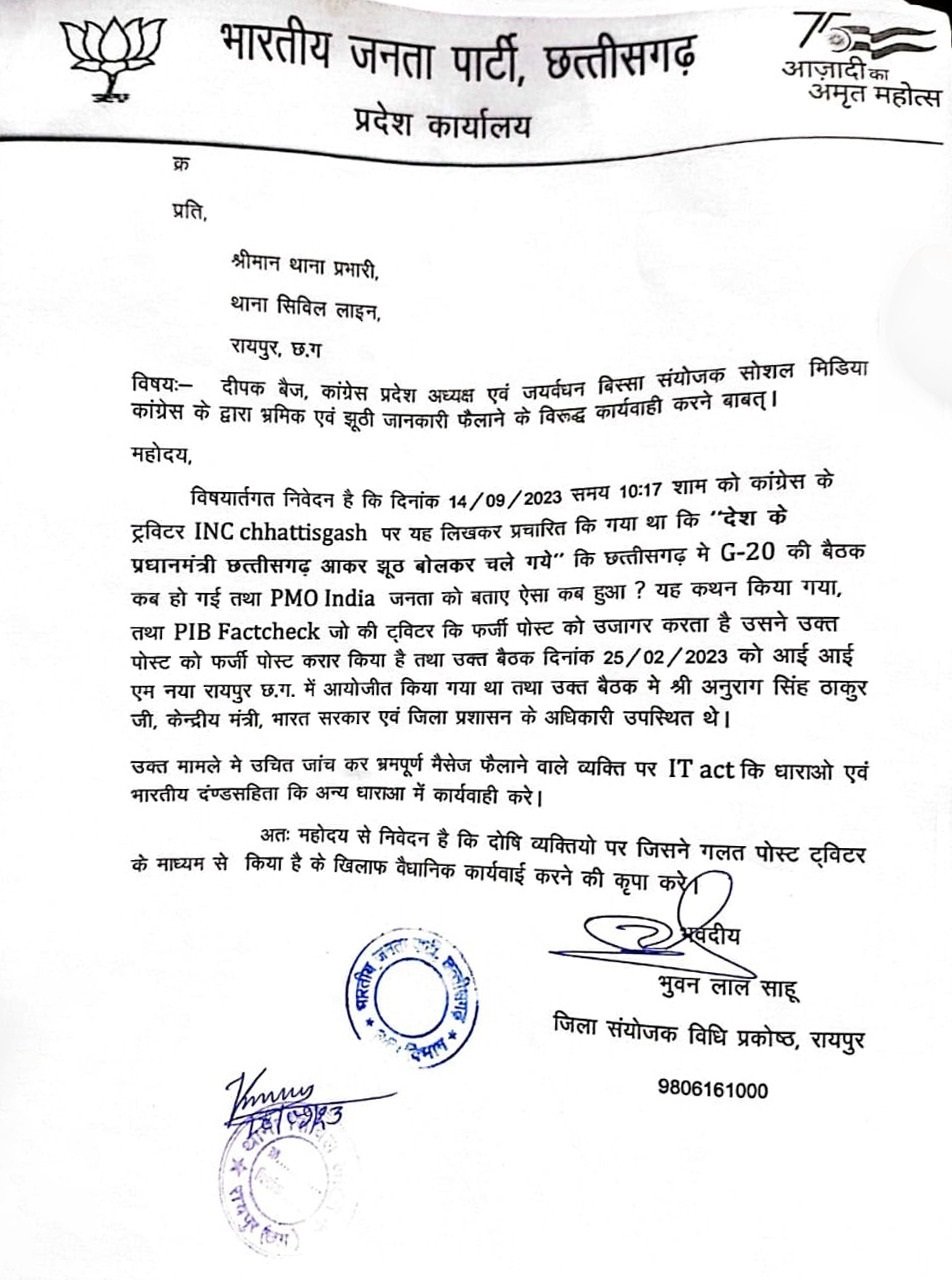 भारतीय जनता पार्टी, छत्तीसगढ़
प्रदेश कार्यालय
75
आज़ादी का
अमृत महोत्स
क्र
प्रति,
श्रीमान थाना प्रभारी,
थाना सिविल लाइन,
रायपुर, छ.ग
विषयः– दीपक बैज, कांग्रेस प्रदेश अध्यक्ष एवं जयर्वधन बिस्सा संयोजक सोशल मिडिया
कांग्रेस के द्वारा भ्रमिक एवं झूठी जानकारी फैलाने के विरूद्ध कार्यवाही करने बाबत्।
महोदय,
विषयार्तगत निवेदन है कि दिनांक 14/09/2023 समय 10:17 शाम को कांग्रेस के
ट्रविटर INC chhattisgash पर यह लिखकर प्रचारित कि गया था कि "देश के
प्रधानमंत्री छत्तीसगढ़ आकर झूठ बोलकर चले गये" कि छत्तीसगढ़ मे G-20 की बैठक
कब हो गई तथा PMO India जनता को बताए ऐसा कब हुआ ? यह कथन किया गया,
तथा PIB Factcheck जो की ट्विटर कि फर्जी पोस्ट को उजागर करता है उसने उक्त
पोस्ट को फर्जी पोस्ट करार किया है तथा उक्त बैठक दिनांक 25/02/2023 को आई आई
एम नया रायपुर छ.ग. में आयोजीत किया गया था तथा उक्त बैठक मे श्री अनुराग सिंह ठाकुर
जी, केन्द्रीय मंत्री, भारत सरकार एवं जिला प्रशासन के अधिकारी उपस्थित थे।
उक्त मामले मे उचित जांच कर भ्रमपूर्ण मैसेज फैलाने वाले व्यक्ति पर IT act कि धाराओ एवं
भारतीय दंण्डसहिता कि अन्य धाराआ में कार्यवाही करे।
अतः महोदय से निवेदन है कि दोषि व्यक्तियो पर जिसने गलत पोस्ट ट्विटर
के माध्यम से किया है के खिलाफ वैधानिक कार्यवाई करने की कृपा करे।
भवदीय
भुवन लाल साहू
जिला संयोजक विधि प्रकोष्ठ, रायपुर
9806161000
भारतीय जनता पार्टी, छत्तीसगढ़
विभाग
थाना
रायपुर (छ.ग)